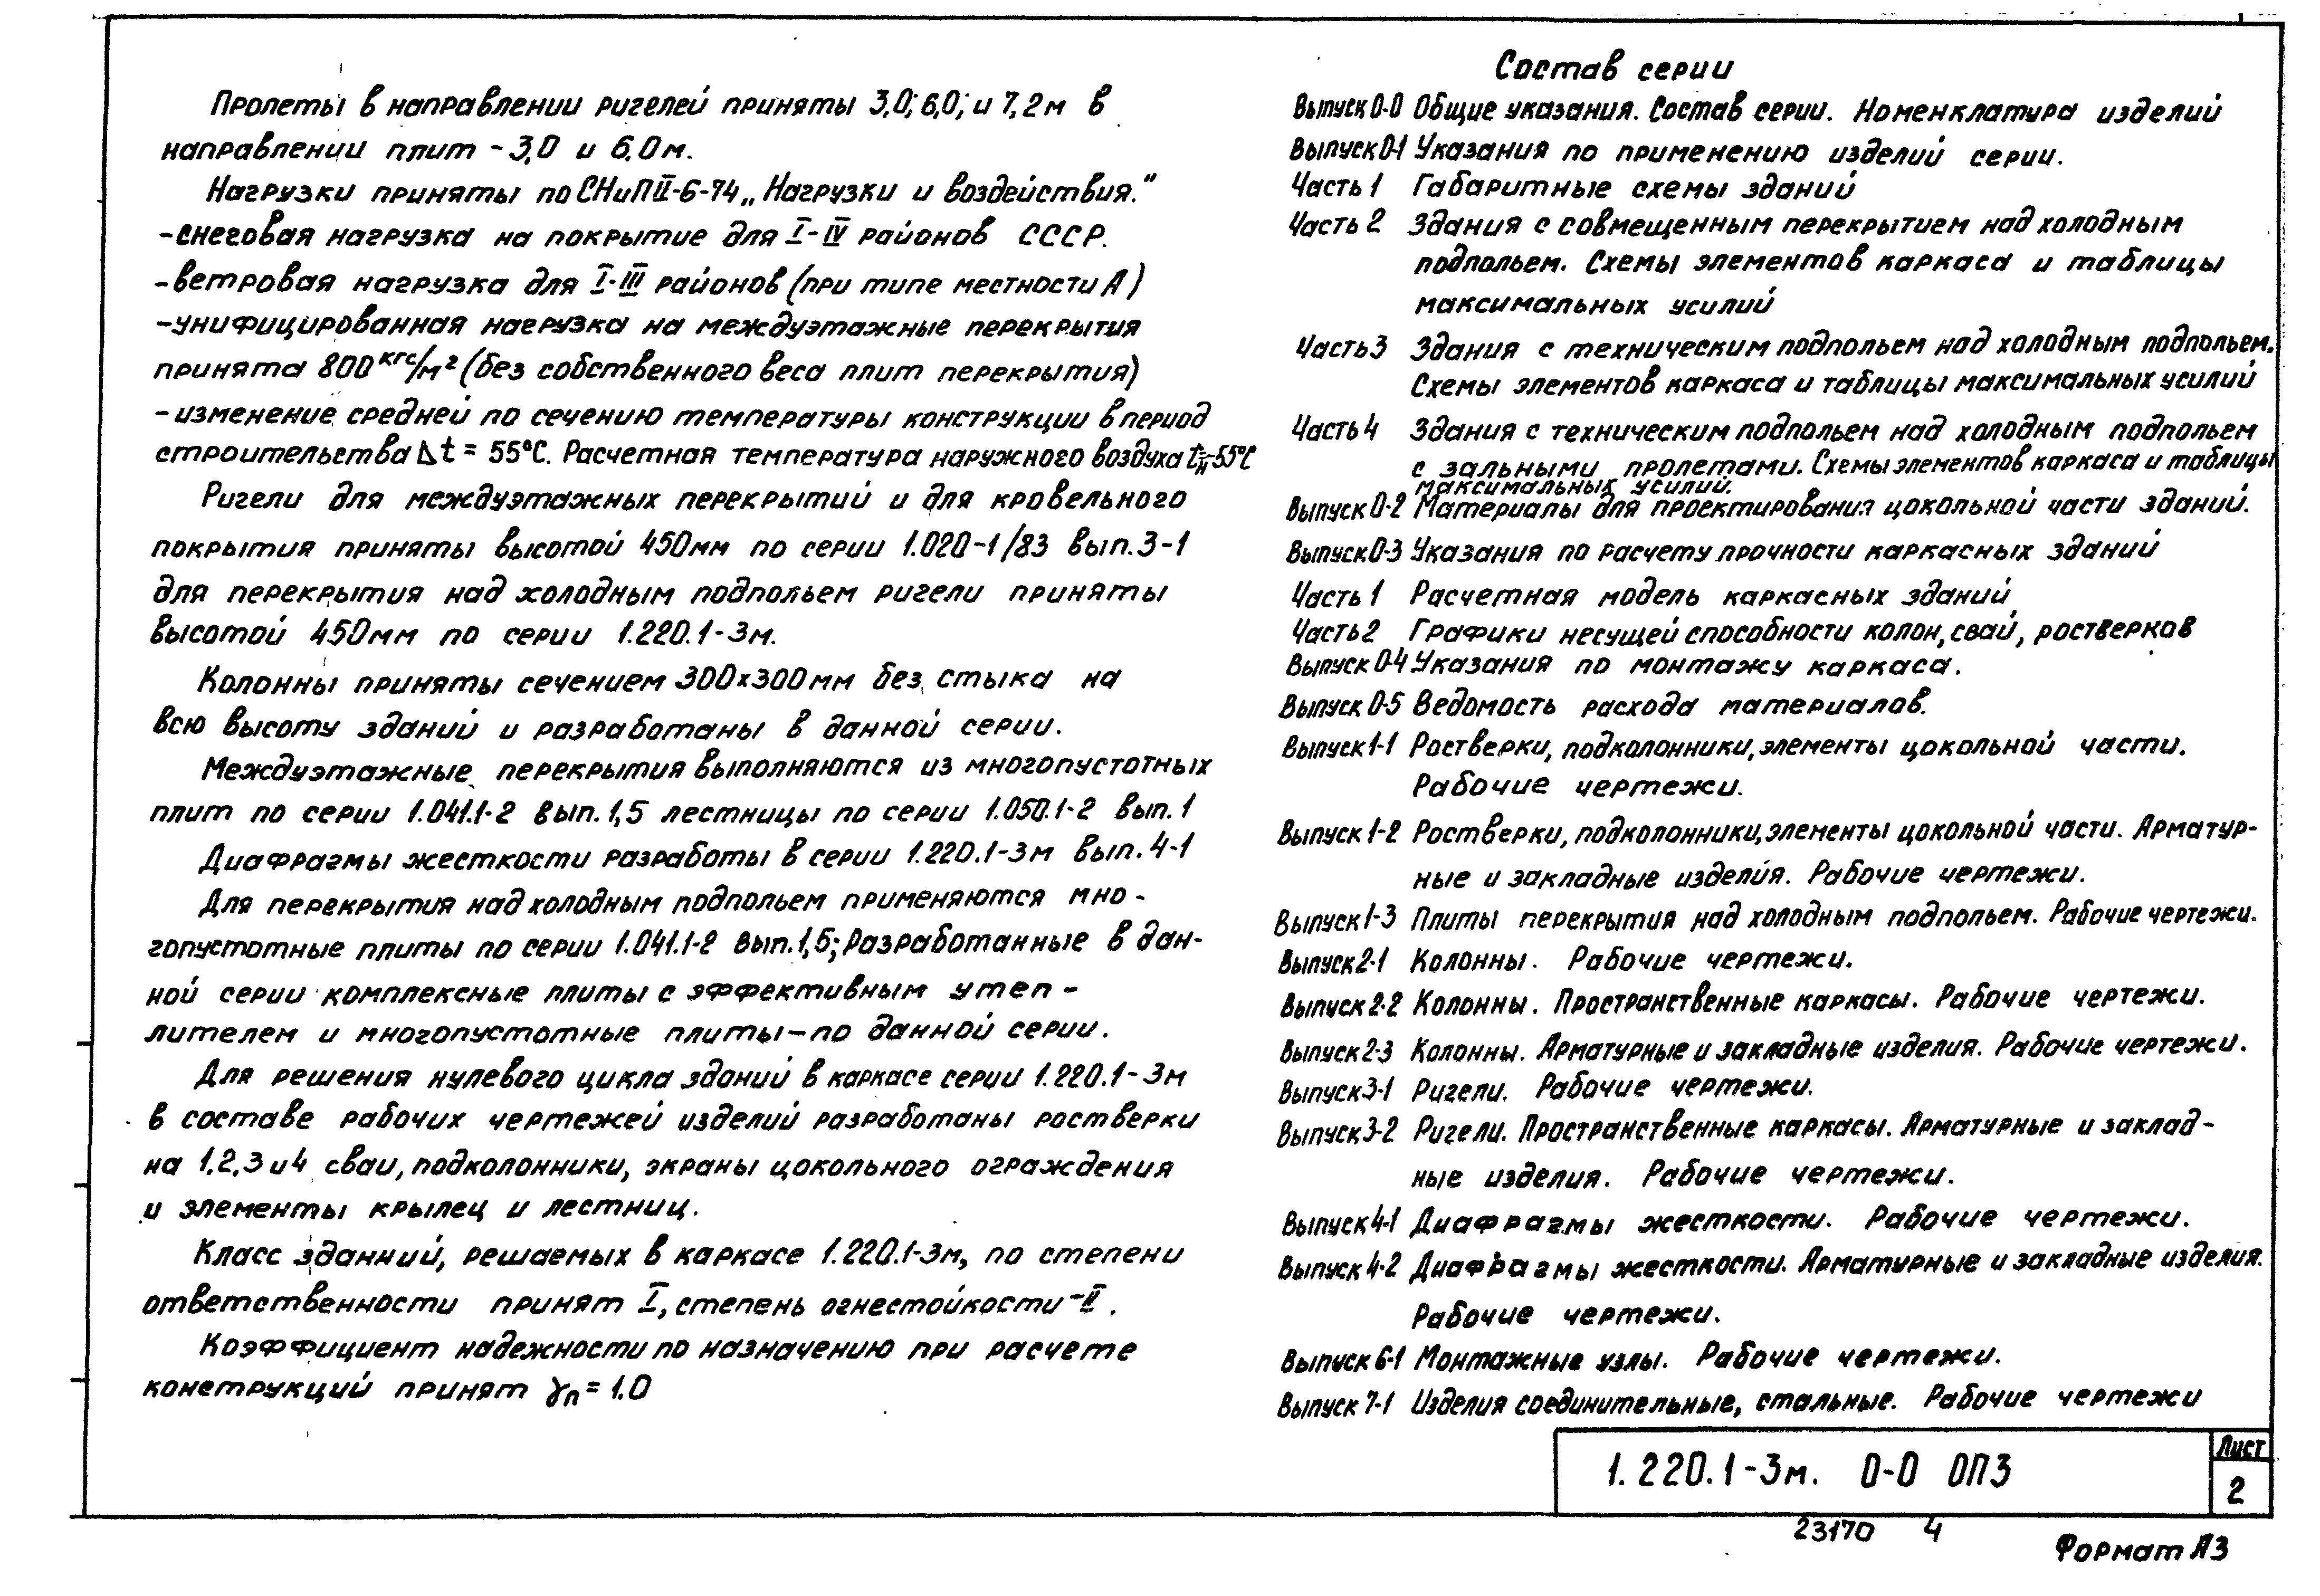 Пролеты в направлении ригелей приняты 3,0; 6,0; и 7,2м в
направлении плит - 3,0 и 6,0м.
Нагрузки приняты по СНиП II-6-74 „Нагрузки и воздействия."
-снеговая нагрузка на покрытие для I-IV районов СССР.
-ветровая нагрузка для I-III районов (при типе местности А)
-унифицированная нагрузка на междуэтажные перекрытия
принята 800 кгс/м² (без собственного веса плит перекрытия)
-изменение средней по сечению температуры конструкции в период
строительства Δt = 55°С. Расчетная температура наружного воздуха tн=-55°С
Ригели для междуэтажных перекрытий и для кровельного
покрытия приняты высотой 450мм по серии 1.020-1/83 вып.3-1
для перекрытия над холодным подпольем ригели приняты
высотой 450мм по серии 1.220.1-3м.
Колонны приняты сечением 300х300мм без стыка на
всю высоту зданий и разработаны в данной серии.
Междуэтажные перекрытия выполняются из многопустотных
плит по серии 1.041.1-2 вып. 1,5 лестницы по серии 1.050.1-2 вып. 1
Диафрагмы жесткости разработы в серии 1.220.1-3м вып. 4-1
Для перекрытия над холодным подпольем применяются мно-
гопустотные плиты по серии 1.041.1-2 вып.1,5; разработанные в дан-
ной серии комплексные плиты с эффективным утеп-
лителем и многопустотные плиты-по данной серии.
Для решения нулевого цикла зданий в каркасе серии 1.220.1-3м
в составе рабочих чертежей изделий разработаны ростверки
на 1.2,3 и 4 сваи, подколонники, экраны цокольного ограждения
и элементы крылец и лестниц.
Класс зданний, решаемых в каркасе 1.220.1-3м, по степени
ответственности принят I, степень огнестойкости -II.
Коэффициент надежности по назначению при расчете
конструкций принят γn = 1.0
Состав серии
Выпуск 0-0 Общие указания. Состав серии. Номенклатура изделий
Выпуск 0-1 Указания по применению изделий серии.
Часть 1 Габаритные схемы зданий
Часть 2 Здания с совмещенным перекрытием над холодным
подпольем. Схемы элементов каркаса и таблицы
максимальных усилий
Часть 3 Здания с техническим подпольем над холодным подпольем.
Схемы элементов каркаса и таблицы максимальных усилий
Часть 4 Здания с техническим подпольем над холодным подпольем
с зальными пролетами. Схемы элементов каркаса и таблицы
максимальных усилий.
Выпуск 0-2 Материалы для проектирования цокольной части зданий.
Выпуск 0-3 Указания по расчету прочности каркасных зданий
Часть 1 Расчетная модель каркасных зданий
Часть 2 Графики несущей способности колон, свай, ростверков
Выпуск 0-4 Указания по монтажу каркаса.
Выпуск 0-5 Ведомость расхода материалов.
Выпуск 1-1 Ростверки, подколонники, элементы цокольной части.
Рабочие чертежи.
Выпуск 1-2 Ростверки, подколонники, элементы цокольной части. Арматур-
ные и закладные изделия. Рабочие чертежи.
Выпуск 1-3 Плиты перекрытия над холодным подпольем. Рабочие чертежи.
Выпуск 2-1 Колонны. Рабочие чертежи.
Выпуск 2-2 Колонны. Пространственные каркасы. Рабочие чертежи.
Выпуск 2-3 Колонны. Арматурные и закладные изделия. Рабочие чертежи.
Выпуск 3-1 Ригели. Рабочие чертежи.
Выпуск 3-2 Ригели. Пространственные каркасы. Арматурные и заклад-
ные изделия. Рабочие чертежи.
Выпуск 4-1 Диафрагмы жесткости. Рабочие чертежи.
Выпуск 4-2 Диафрагмы жесткости. Арматурные и закладные изделия.
Рабочие чертежи.
Выпуск 6-1 Монтажные узлы. Рабочие чертежи.
Выпуск 7-1 Изделия соединительные, стальные. Рабочие чертежи
1.220.1-3м. 0-0 ОПЗ
Лист
2
23170 4
Формат А3